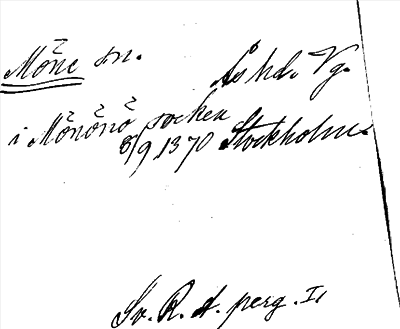 Möne sn. Ås hd. Vg.
i Mönönö socken
8/9 1370 Stockholm
Sv. R. A. perg. I,